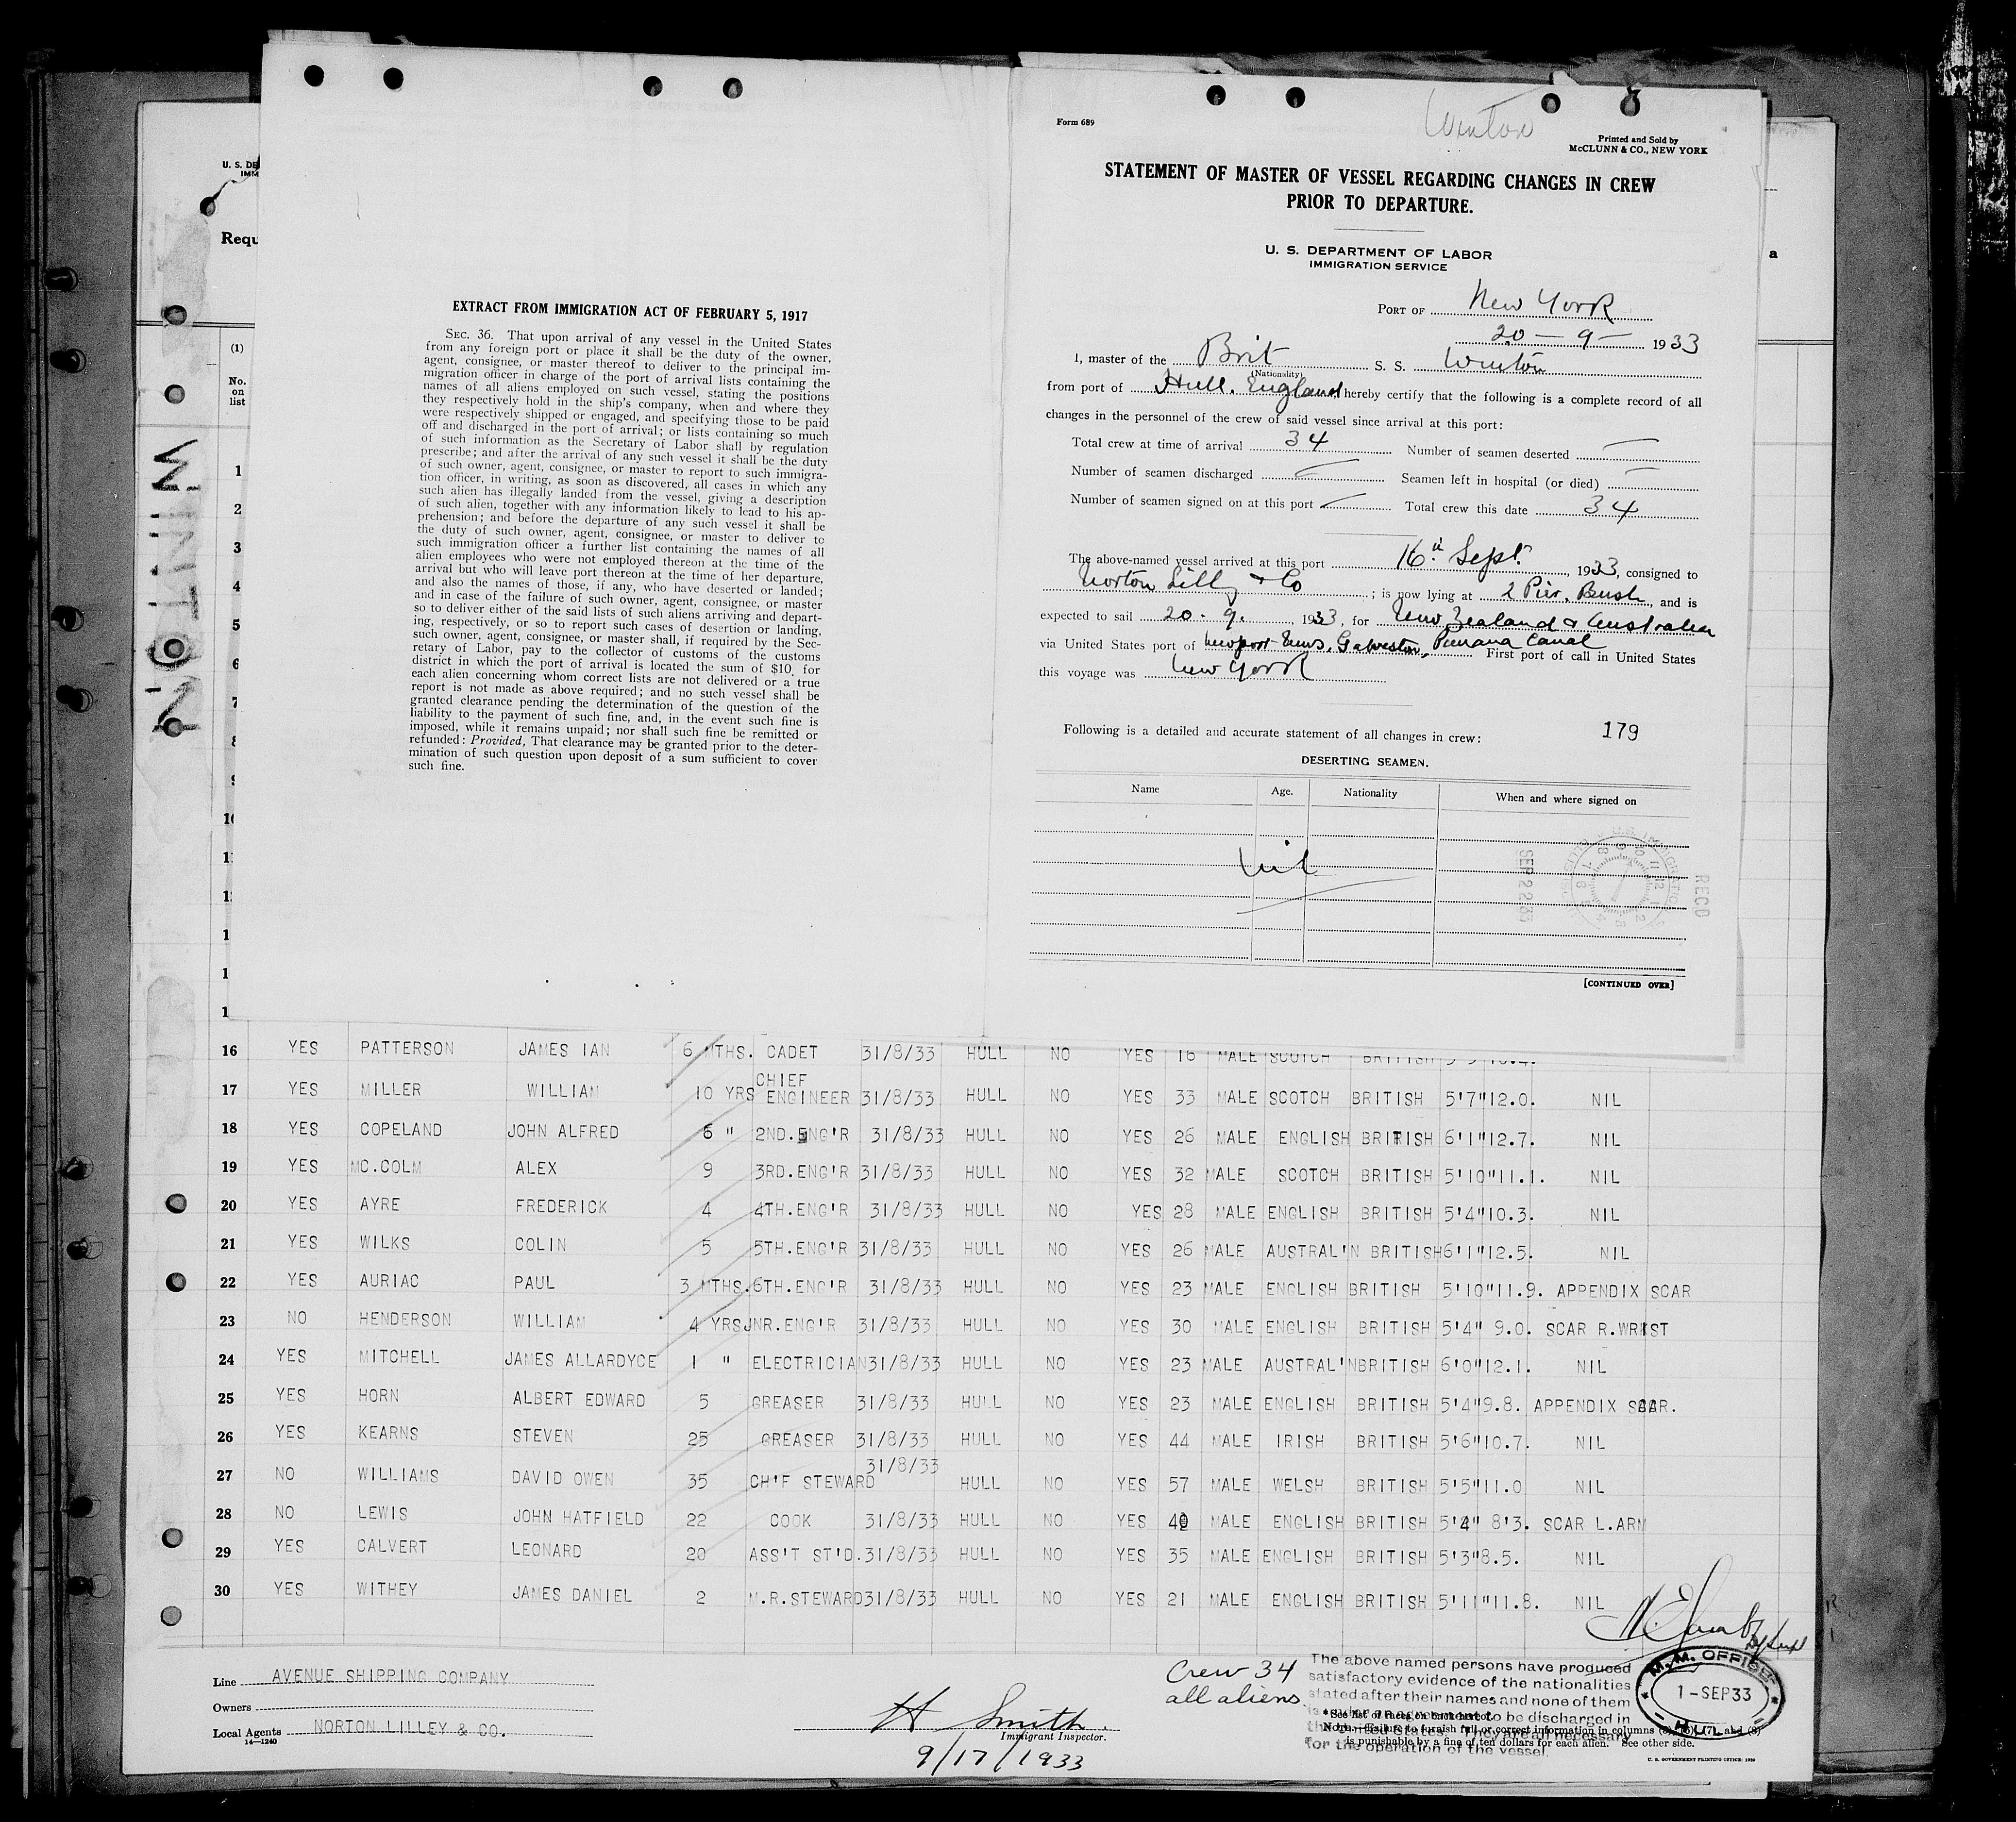 U. S. DE
IMM
Requ
(1)
No.
on
list
WINTON
1
2
3
4
5
6
7
8
9
10
11
1
1
1
1
EXTRACT FROM IMMIGRATION ACT OF FEBRUARY 5, 1917
SEC. 36. That upon arrival of any vessel in the United States
from any foreign port or place it shall be the duty of the owner,
agent, consignee, or master thereof to deliver to the principal im-
migration officer in charge of the port of arrival lists containing the
names of all aliens employed on such vessel, stating the positions
they respectively hold in the ship's company, when and where they
were respectively shipped or engaged, and specifying those to be paid
off and discharged in the port of arrival; or lists containing so much
of such information as the Secretary of Labor shall by regulation
prescribe; and after the arrival of any such vessel it shall be the duty
of such owner, agent, consignee, or master to report to such immigra-
tion officer, in writing, as soon as discovered, all cases in which any
such alien has illegally landed from the vessel, giving a description
of such alien, together with any information likely to lead to his ap-
prehension; and before the departure of any such vessel it shall be
the duty of such owner, agent, consignee, or master to deliver to
such immigration officer a further list containing the names of all
alien employees who were not employed thereon at the time of the
arrival but who will leave port thereon at the time of her departure,
and also the names of those, if any, who have deserted or landed;
and in case of the failure of such owner, agent, consignee, or master
so to deliver either of the said lists of such aliens arriving and depart-
ing, respectively, or so to report such cases of desertion or landing,
such owner, agent, consignee, or master shall, if required by the Sec-
retary of Labor, pay to the collector of customs of the customs
district in which the port of arrival is located the sum of $10 for
each alien concerning whom correct lists are not delivered or a true
report is not made as above required; and no such vessel shall be
granted clearance pending the determination of the question of the
liability to the payment of such fine, and, in the event such fine is
imposed, while it remains unpaid; nor shall such fine be remitted or
refunded: Provided, That clearance may be granted prior to the deter-
mination of such question upon deposit of a sum sufficient to cover
such fine.
Form 689
Winton
Printed and Sold by
McCLUNN & CO., NEW YORK
STATEMENT OF MASTER OF VESSEL REGARDING CHANGES IN CREW
PRIOR TO DEPARTURE.
U. S. DEPARTMENT OF LABOR
IMMIGRATION SERVICE
a
PORT OF New York
20 - 9 - 1933
I, master of the Brit S. S. Winton
(Nationality)
from port of Hull. England hereby certify that the following is a complete record of all
changes in the personnel of the crew of said vessel since arrival at this port:
Total crew at time of arrival 34 Number of seamen deserted —
Number of seamen discharged — Seamen left in hospital (or died) —
Number of seamen signed on at this port — Total crew this date 34
The above-named vessel arrived at this port 16th Sept. , 1933, consigned to
Norton Lilly & Co ; is now lying at 2 Pier. Bush , and is
expected to sail 20. 9. , 1933, for New Zealand & Australia
via United States port of Newport News, Galveston, Panama Canal First port of call in United States
this voyage was New York
Following is a detailed and accurate statement of all changes in crew: 179
DESERTING SEAMEN.
Name Age. Nationality When and where signed on
Nil
SEP 22 33
RECD
[CONTINUED OVER]
16 YES PATTERSON JAMES IAN 6 MTHS. CADET 31/8/33 HULL NO YES 16 MALE SCOTCH BRITISH
17 YES MILLER WILLIAM 10 YRS CHIEF ENGINEER 31/8/33 HULL NO YES 33 MALE SCOTCH BRITISH 5'7" 12.0. NIL
18 YES COPELAND JOHN ALFRED 6 " 2ND.ENG'R 31/8/33 HULL NO YES 26 MALE ENGLISH BRITISH 6'1" 12.7. NIL
19 YES MC.COLM ALEX 9 3RD.ENG'R 31/8/33 HULL NO YES 32 MALE SCOTCH BRITISH 5'10" 11.1. NIL
20 YES AYRE FREDERICK 4 4TH.ENG'R 31/8/33 HULL NO YES 28 MALE ENGLISH BRITISH 5'4" 10.3. NIL
21 YES WILKS COLIN 5 5TH.ENG'R 31/8/33 HULL NO YES 26 MALE AUSTRAL'N BRITISH 6'1" 12.5. NIL
22 YES AURIAC PAUL 3 MTHS. 6TH.ENG'R 31/8/33 HULL NO YES 23 MALE ENGLISH BRITISH 5'10" 11.9. APPENDIX SCAR
23 NO HENDERSON WILLIAM 4 YRS JNR.ENG'R 31/8/33 HULL NO YES 30 MALE ENGLISH BRITISH 5'4" 9.0. SCAR R.WRIST
24 YES MITCHELL JAMES ALLARDYCE 1 " ELECTRICIAN 31/8/33 HULL NO YES 23 MALE AUSTRAL'N BRITISH 6'0" 12.1. NIL
25 YES HORN ALBERT EDWARD 5 GREASER 31/8/33 HULL NO YES 23 MALE ENGLISH BRITISH 5'4" 9.8. APPENDIX SCAR.
26 YES KEARNS STEVEN 25 GREASER 31/8/33 HULL NO YES 44 MALE IRISH BRITISH 5'6" 10.7. NIL
27 NO WILLIAMS DAVID OWEN 35 CH'F STEWARD 31/8/33 HULL NO YES 57 MALE WELSH BRITISH 5'5" 11.0 NIL
28 NO LEWIS JOHN HATFIELD 22 COOK 31/8/33 HULL NO YES MALE ENGLISH BRITISH 5'4" 8'3. SCAR L.ARM
29 YES CALVERT LEONARD 20 ASS'T ST'D. 31/8/33 HULL NO YES 35 MALE ENGLISH BRITISH 5'3" 8.5. NIL
30 YES WITHEY JAMES DANIEL 2 M.R.STEWARD 31/8/33 HULL NO YES 21 MALE ENGLISH BRITISH 5'11" 11.8. NIL
Line AVENUE SHIPPING COMPANY
Owners
Local Agents NORTON LILLEY & CO.
14—1240
H Smith.
Immigrant Inspector.
9/17/1933
Crew 34
all aliens.
The above named persons have produced
satisfactory evidence of the nationalities
stated after their names and none of them
to be discharged in
the United States. They are all necessary
for the operation of the vessel.
*See list of races on back hereof.
NOTE.—Failure to furnish full or correct information in columns and (8)
is punishable by a fine of ten dollars for each alien. See other side.
M.M. OFFICE
1-SEP33
HULL
U. S. GOVERNMENT PRINTING OFFICE